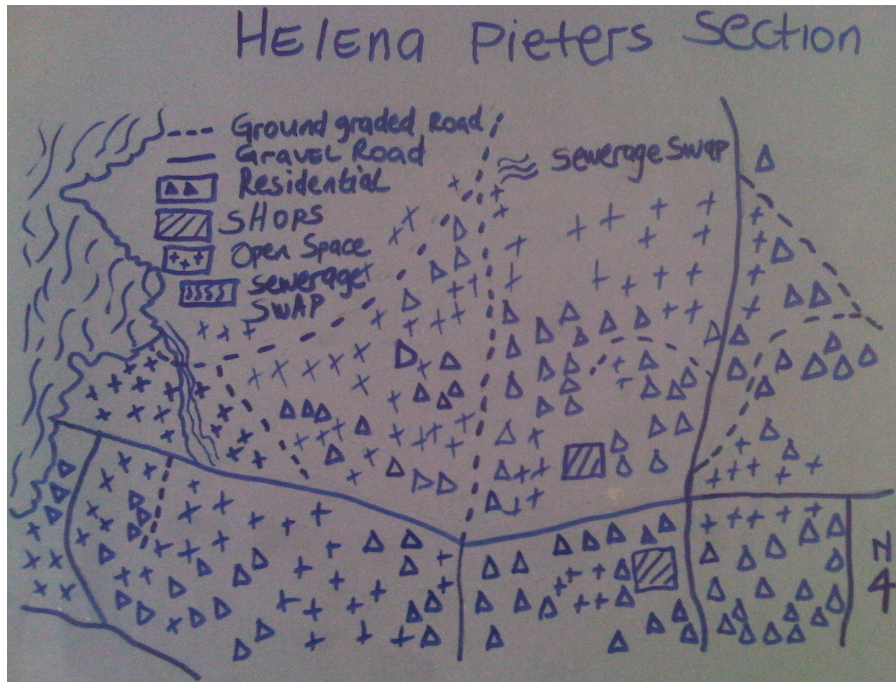 HElena Pieters Section
Ground graded Road
GRAVEL ROAD
Residential
SHOPS
Open Space
Sewerage
SWAP
Sewerage Swap
N